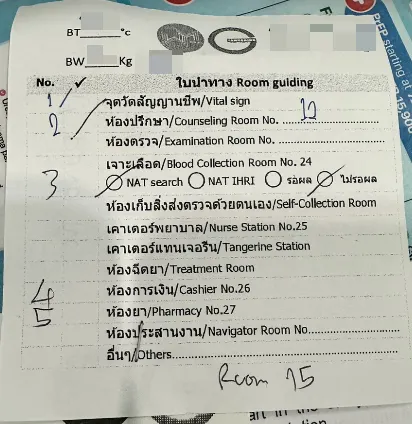 BT ____ °c
BW ____ Kg
No. ✓ ใบนำทาง Room guiding
1 จุดวัดสัญญาณชีพ/Vital sign
2 ห้องปรึกษา/Counseling Room No. .......... 12
ห้องตรวจ/Examination Room No. ..........
3 เจาะเลือด/Blood Collection Room No. 24
NAT search NAT IHRI รอผล ไม่รอผล
ห้องเก็บสิ่งส่งตรวจด้วยตนเอง/Self-Collection Room
เคาเตอร์พยาบาล/Nurse Station No.25
เคาเตอร์แทนเจอรีน/Tangerine Station
ห้องฉีดยา/Treatment Room
4 ห้องการเงิน/Cashier No.26
5 ห้องยา/Pharmacy No.27
ห้องประสานงาน/Navigator Room No..........
อื่นๆ/Others..........
Room 15
PrEP